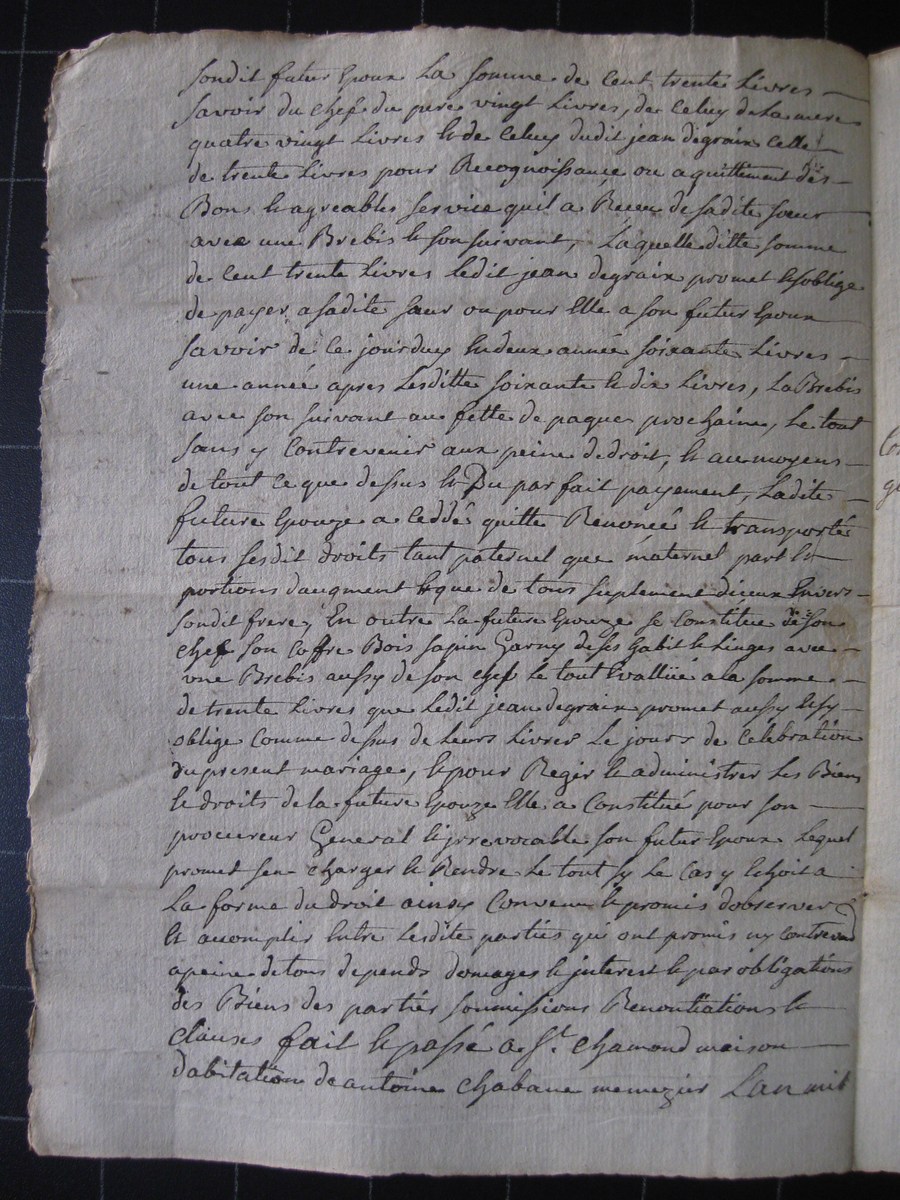 sondit futur Epoux La somme de Cent trente Livres
savoir du chef du pere vingt Livres, de Celuy de La mere
quatre vingt Livres et de Celuy dudit jean degraix Celle
de trente Livres pour Recognoissance ou aquittement des
Bons et agreables service quil a Receu de sadite sœur
avec une Brebis et son suivant, Laquelle ditte somme
de Cent trente Livres ledit jean degraix promet et soblige
de payer a sadite sœur ou pour Elle a son futur Epoux
savoir de Ce jourduy En deux année soixante Livres
une année apres Lesditte soixante et dix Livres, La Brebis
avec son suivant au fette de paques prochaine, Le tout
sans y Contrevenir aux peine de droit, Et au moyens
de tout Ce que dessus et Du parfait payement, Ladite
future Epouze a Ceddé quitte Renoncé et transporté
tous sesdit droits tant paternel que maternel part Et
portions daugment et que de tous suplement diceux Envers
sondit frere, En outre La future Epouze se Constitue de son
chef son Coffre Bois sapin Garny de ses habit et Linges avec
une Brebis aussy de son chef Le tout Evallüé a la somme
de trente Livres que Ledit jean degraix promet aussy et sy
oblige Comme dessus de Leurs Livrer Le jours de Célébration
du present mariage, et pour Regir et administrer Les Biens
et droits de la future Epouze Elle a Constitué pour son
procureur General et irrevocable son futur Epoux Lequel
promet sen charger et Rendre Le tout sy Le Cas y Echoit a
La forme du droit ainsy Convenu et promis dobserver
Et acomplir Entre Lesdite parties qui ont promis ny Contrevenir
a peine de tous depends domages et interest et par obligations
des Biens des parties soumissions Renontiations et
Clauses fait et passé a St. chamond maison
dabitation de antoine Chabane Lan mil